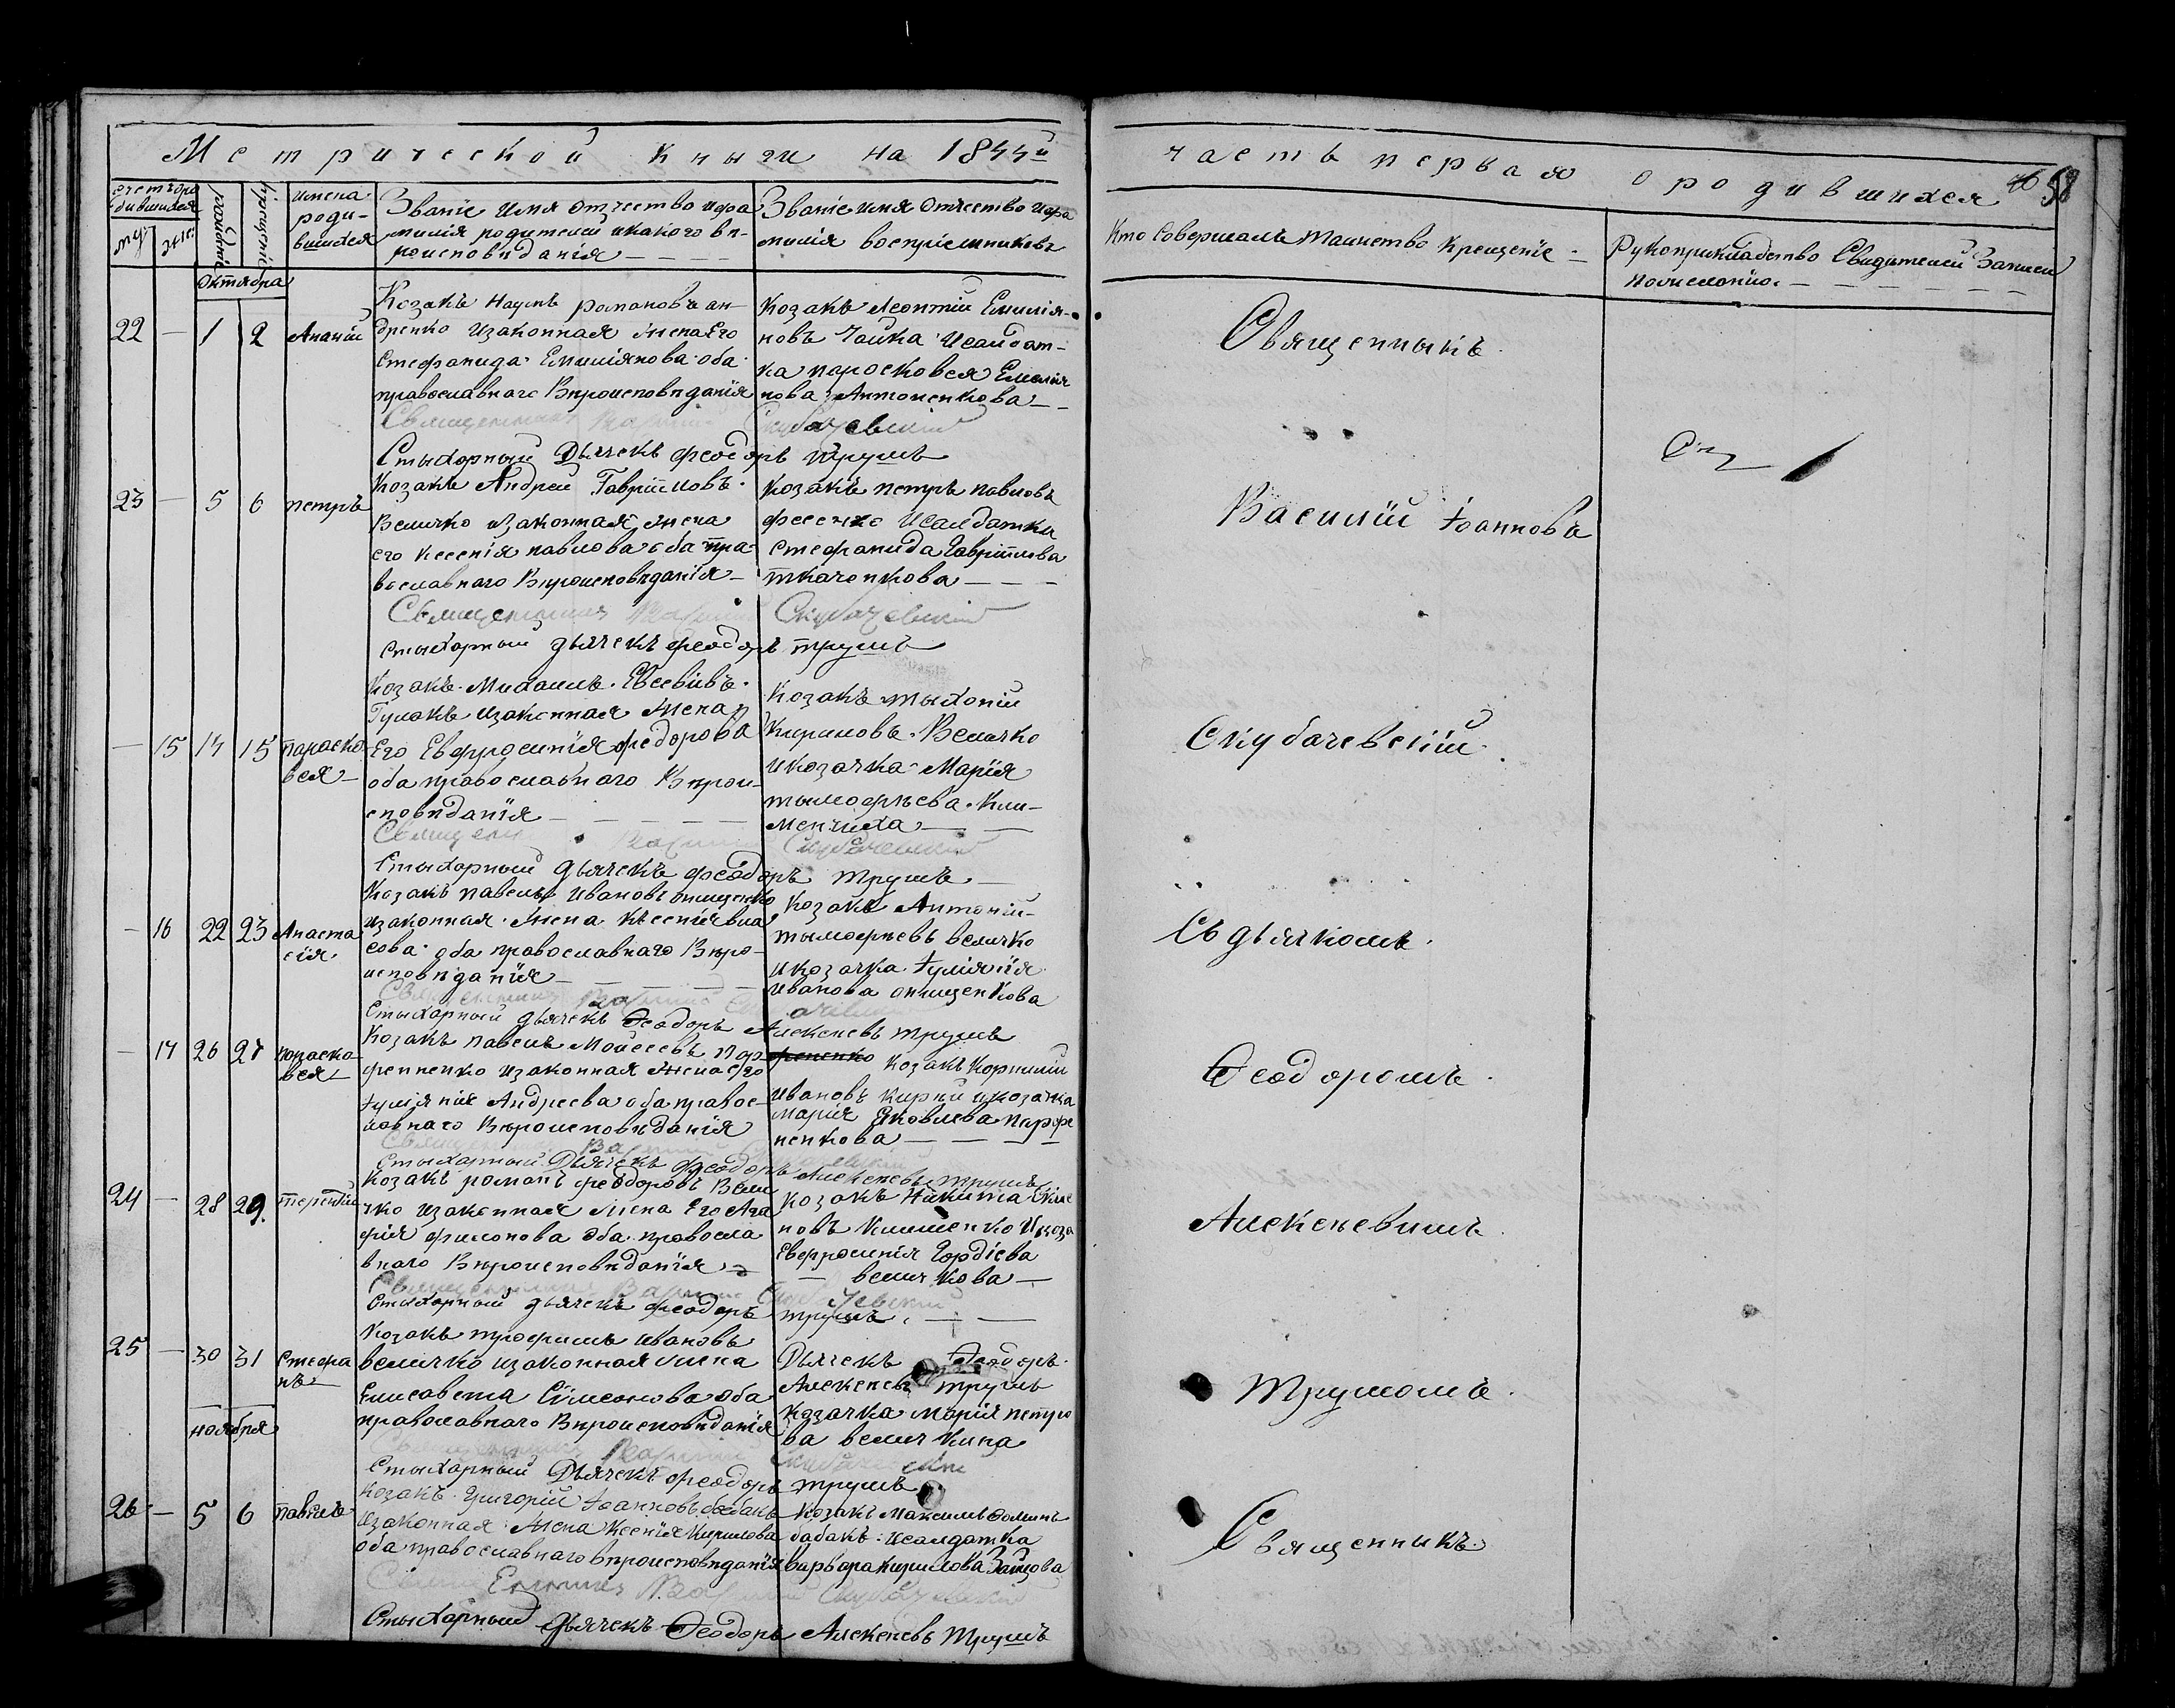 Метрической книги на 1844й
часть первая о родившихся 58
счетъ ро
дившихся
муж
жен
рожденія
крещенія
имена
роди-
вшихся
Званіе имя отчество и фа
милія родителей и какого вѣ-
роисповѣданія
Званіе имя Отчество и фа
милія воспріемниковъ
Кто Совершалъ таинство крещенія
Рукоприкладство Свидетелей Записи
по желанію
Октября
22 — 1 2 Ананій
Козакъ Наумъ романовъ ан-
дренко изаконная жена Его
Стефанида Емиліянова оба
православнаго Вѣроисповѣданія
Козакъ Леонтій Емилія-
новъ Чайка Исалдат-
ка парасковея Емилія
нова Антоненкова
Священникъ Василій Скубачевскій
Стыхарный Дьячекъ феодоръ трушъ
23 — 5 6 петръ
Козакъ Андрей Гавріиловъ
Величко изаконная жена
его ксенія павлова оба пра-
вославнаго Вѣроисповѣданія
Козакъ петръ павловъ
фесенко Исалдатка
Стефанида Гавріилова
ткаченкова
Священникъ Василій Скубачевскій
стыхарный дьячекъ феодоръ трушъ
— 15 14 15 параско
вея
Козакъ Михаилъ Евсевіевъ
Гулакъ изаконная жена
Его Евфросинія федорова
оба православнаго Вѣрои-
споведанія
Козакъ тыхоній
Кириловъ Величко
и козачка Марія
тымофѣева Кли-
менчиха
Священникъ Василій Скубачевскій
Стыхарный дьячекъ феодоръ трушъ
— 16 22 23 Анаста
сія
Козакъ павелъ Ивановъ онищенко
изаконная жена Ксенія вла
сова оба православнаго Вѣро-
исповѣданія
Козакъ Антоній
тымофѣевъ величко
и козачка Іуліянія
Иванова онищенкова
Священникъ Василій
Стыхарный дьячекъ Ѳеодоръ Алексѣевъ трушъ
— 17 26 27 параско
вея
Козакъ павелъ Мойсеевъ пар-
фененко изаконная жена его
Іуліянія Андреева оба правос-
лавнаго Вѣроисповѣданія
фененко Козакъ Корнилій
Ивановъ кирпи и козачка
Марія Яковлева парфе
ненкова
Священникъ Василій Скубачевскій
Стыхарный Дьячекъ феодоръ Алексѣевъ трушъ
24 — 28 29. терентій
Козакъ романъ феодоровъ Вели
чко изаконная жена Его Ага
фія филонова оба правосла
внаго Вѣроисповѣданія
Козакъ Никита
новъ Клименко Икоза
Евфросинія Гордіева
величкова
Священникъ Василій Скубачевскій
Стыхарный дьячекъ феодоръ трушъ
25 — 30 31 Стефа
нъ
Козакъ трофимъ Ивановъ
величко изаконная жена
Елисавета Сімеонова оба
православнаго Вѣроисповѣданія
Дьячекъ Ѳеодоръ
Алексѣевъ трушъ
Козачка Марія петро
ва величкина
ноября
Священникъ Василій Скубачевскій
Стыхарный Дьячекъ феодоръ трушъ
26 — 5 6 павелъ
Козакъ Григорій Іоанновъ бабакъ
изаконная жена Ксенія Кирилова
оба православнаго вѣроисповѣданія
Козакъ Максимъ Фоминъ
бабакъ исалдатка
варвара кирилова Зайцова
Священникъ Василій Скубачевскій
Стыхарный Дьячекъ Ѳеодоръ Алексѣевъ трушъ
Священникъ
Василій Іоанновъ
Скубачевскій
Съ дьячкомъ
Ѳеодоромъ
Алексѣевимъ
Трушомъ
Священникъ